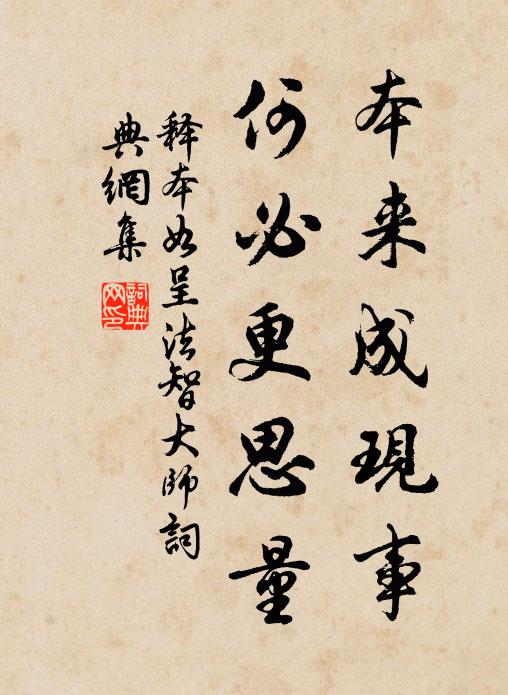 本来成現事
何必更思量
释本如呈法智大師詞
典網集
詞典
网印